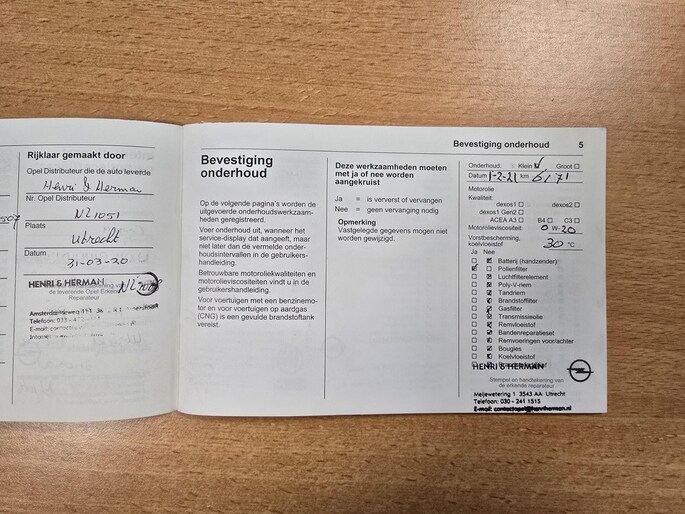 Rijklaar gemaakt door
Opel Distributeur die de auto leverde
Henri & Herman
Nr. Opel Distributeur
NL1051
Plaats
Utrecht
Datum
31-03-20
HENRI & HERMAN
de leverende Opel Erkend
Reparateur
Bevestiging
onderhoud
Op de volgende pagina's worden de
uitgevoerde onderhoudswerkzaam-
heden geregistreerd.
Voer onderhoud uit, wanneer het
service-display dat aangeeft, maar
niet later dan de vermelde onder-
houdsintervallen in de gebruikers-
handleiding.
Betrouwbare motoroliekwaliteiten en
motorolieviscositeiten vindt u in de
gebruikershandleiding.
Voor voertuigen met een benzinemo-
tor en voor voertuigen op aardgas
(CNG) is een gevulde brandstoftank
vereist.
Deze werkzaamheden moeten
met ja of nee worden
aangekruist
Ja = is ververst of vervangen
Nee = geen vervanging nodig
Opmerking
Vastgelegde gegevens mogen niet
worden gewijzigd.
Bevestiging onderhoud 5
Onderhoud: Klein Groot
Datum 1-2-21 km 6171
Motorolie
Kwaliteit:
dexos1 dexos2
dexos1 Gen2
ACEA A3 B4 C3
Motorolieviscositeit: 0 W-20
Vorstbescherming,
koelvloeistof 30 °C
Ja Nee
Batterij (handzender)
Pollenfilter
Luchtfilterelement
Poly-V-riem
Tandriem
Brandstoffilter
Gasfilter
Transmissieolie
Remvloeistof
Bandenreparatieset
Remvoeringen voor/achter
Bougies
Koelvloeistof
HENRI & HERMAN
Stempel en handtekening van
de erkende reparateur
Meijewetering 1 3543 AA Utrecht
Telefoon: 030 - 241 1515